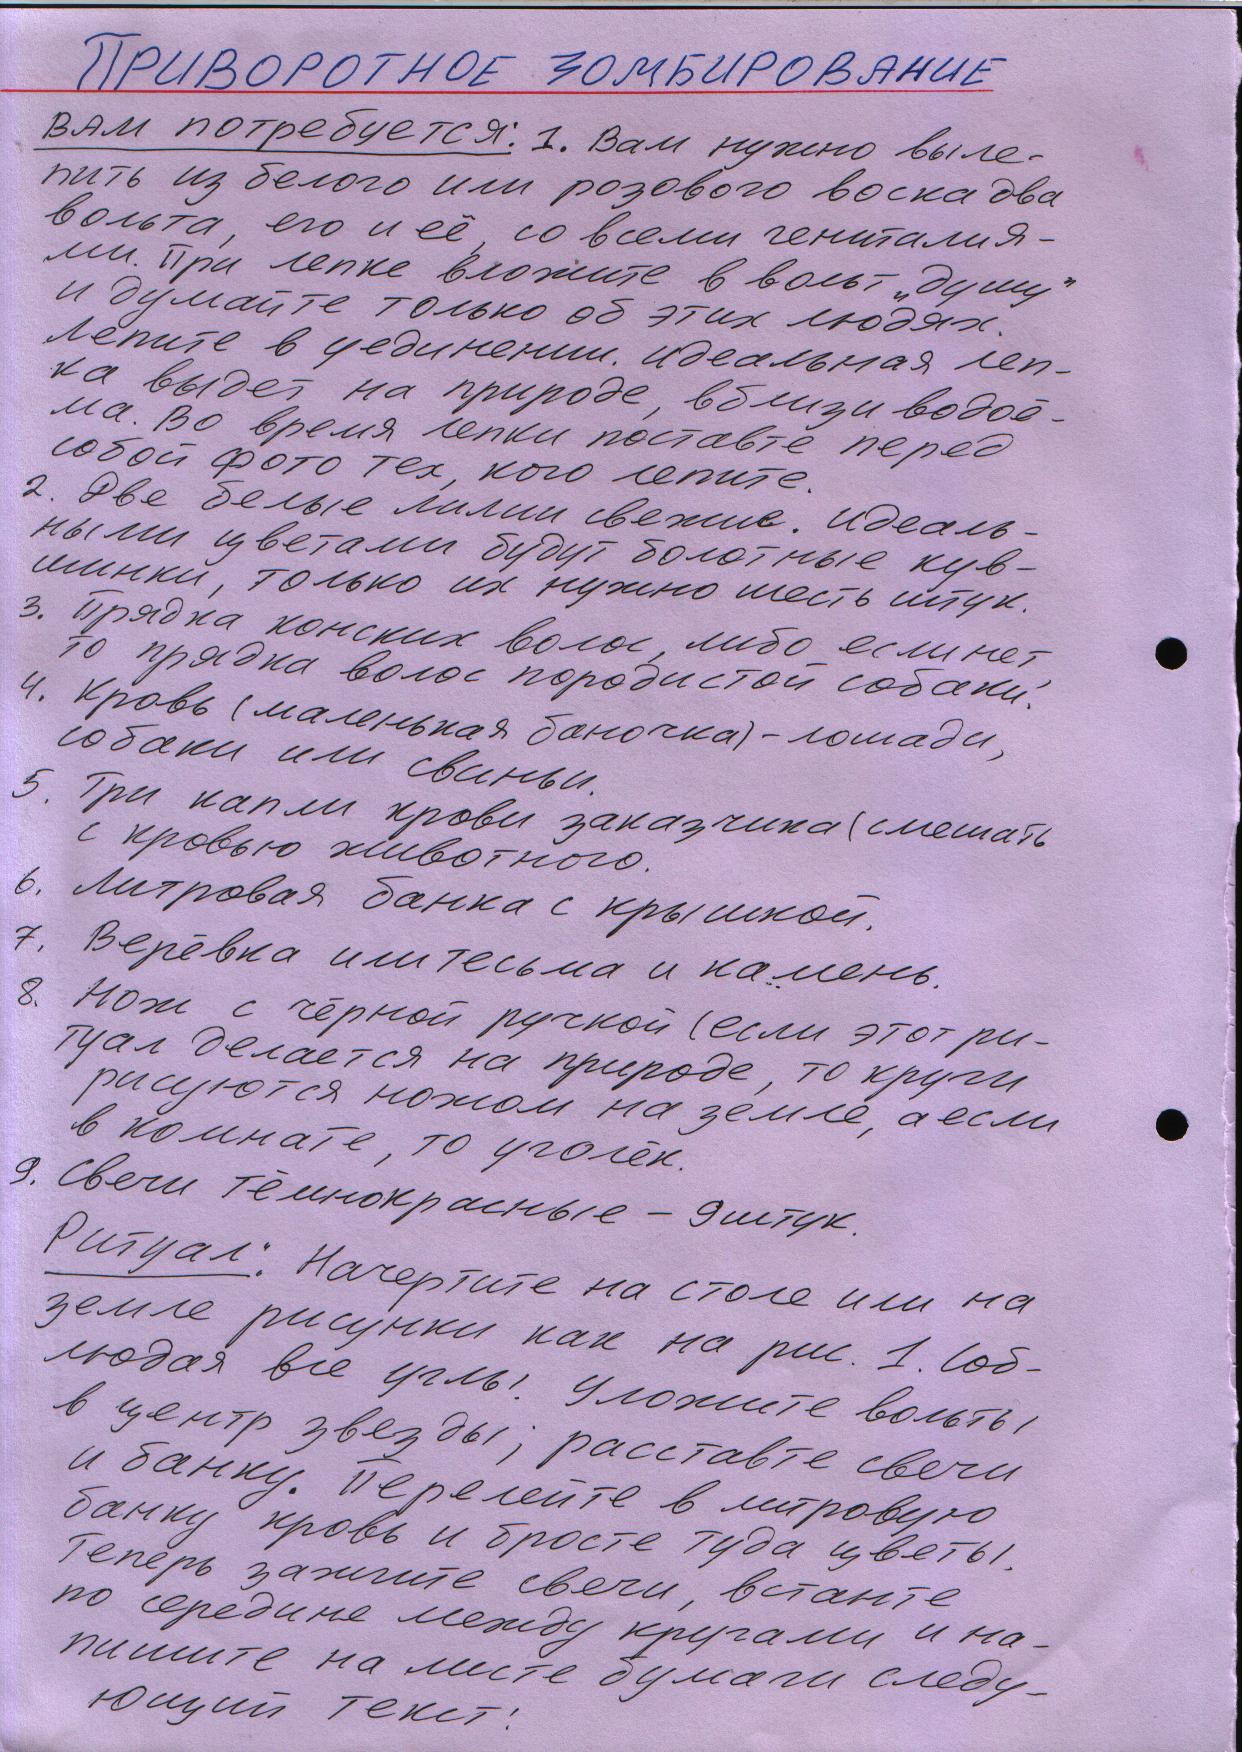 ПРИВОРОТНОЕ ЗОМБИРОВАНИЕ
ВАМ потребуется: 1. Вам нужно выле-
пить из белого или розового воска два
вольта, его и её, со всеми гениталия-
ми. При лепке вложите в вольт „душу"
и думайте только об этих людях.
Лепите в уединении. Идеальная леп-
ка выдет на природе, вблизи водоё-
ма. Во время лепки поставте перед
собой фото тех, кого лепите.
2. Две белые лилии свежие. Идеаль-
ными цветами будут болотные кув-
шинки, только их нужно шесть штук.
3. Прядка конских волос, либо если нет
то прядка волос породистой собаки.
4. Кровь (маленькая баночка) - лошади,
собаки или свиньи.
5. Три капли крови заказчика (смешать
с кровью животного.
6. Литровая банка с крышкой.
7. Верёвка или тесьма и камень.
8. Нож с чёрной ручкой (если этот ри-
туал делается на природе, то круги
рисуются ножом на земле, а если
в комнате, то уголёк.
9. Свечи тёмнокрасные - 9 штук.
Ритуал: Начертите на столе или на
земле рисунки как на рис. 1. Соб-
людая все углы. Уложите вольты
в центр звезды; расставте свечи
и банку. Перелейте в литровую
банку кровь и бросте туда цветы.
Теперь зажгите свечи, встаньте
по середине между кругами и на-
пишите на листе бумаги следу-
ющий текст: